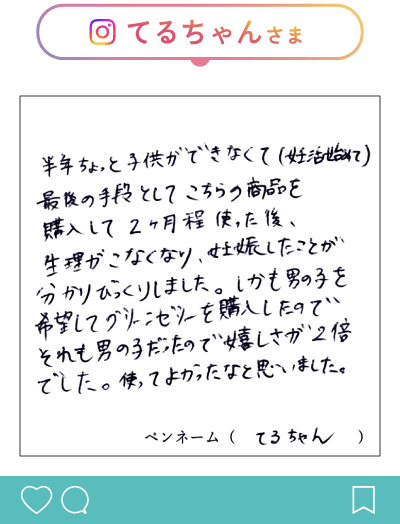 てるちゃんさま
半年ちょっと子供ができなくて(妊活始めて)
最後の手段としてこちらの商品を
購入して2ヶ月程使った後、
生理がこなくなり、妊娠したことが
分かりびっくりしました。しかも男の子を
希望してグリーンゼリーを購入したので
それも男の子だったので嬉しさが2倍
でした。使ってよかったなと思いました。
ペンネーム( てるちゃん )